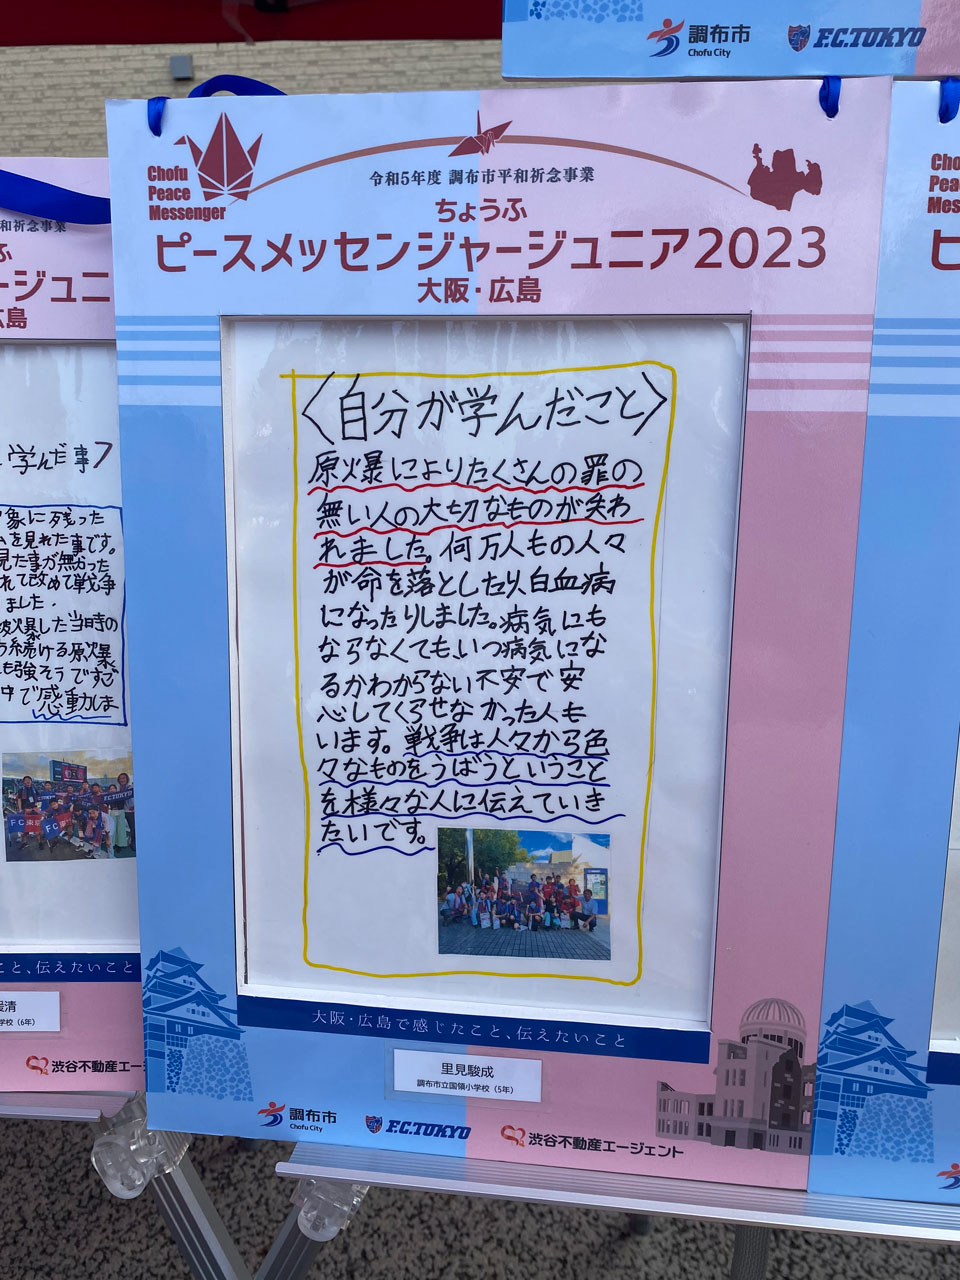 調布市
Chofu City
F.C.TOKYO
Chofu
Peace
Messenger
令和5年度 調布市平和祈念事業
ちょうふ
ピースメッセンジャージュニア2023
大阪・広島
〈自分が学んだこと〉
原爆によりたくさんの罪の
無い人の大切なものが失わ
れました。何万人もの人々
が命を落としたり、白血病
になったりしました。病気にも
ならなくても、いつ病気にな
るかわからない不安で安
心してくらせなかった人も
います。戦争は人々から色
々なものをうばうということ
を様々な人に伝えていき
たいです。
大阪・広島で感じたこと、伝えたいこと
里見駿成
調布市立国領小学校（5年）
調布市
Chofu City
F.C.TOKYO
渋谷不動産エージェント
和祈念事業
ージュニ
広島
学んだ事
象に残った
を見れた事です。
見た事が無かった
れて改めて戦争
ました.
被爆した当時の
続ける原爆
も強そうです
中で感動しま
こと、伝えたいこと
学校（6年）
渋谷不動産エー
Cho
Pea
Mes
ピ